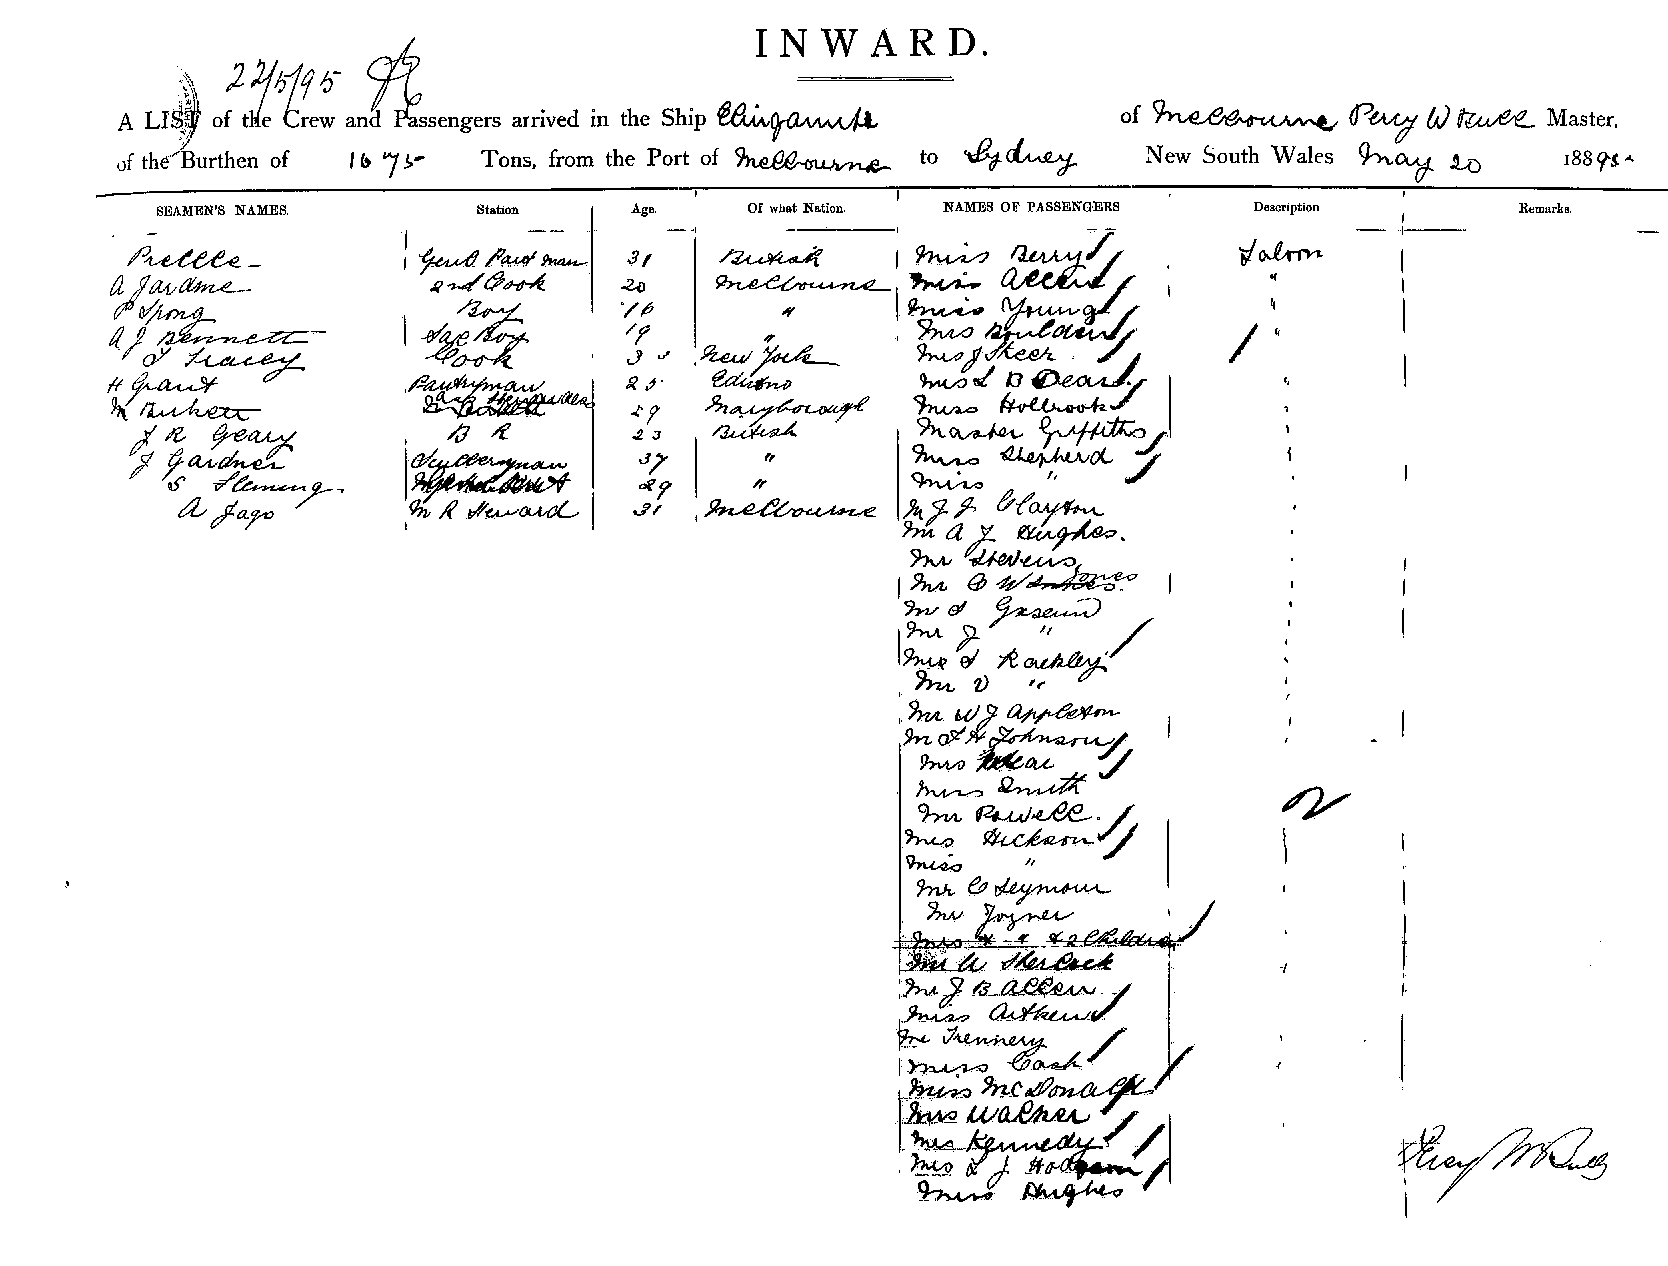 INWARD.
22/5/95
A LIST of the Crew and Passengers arrived in the Ship Elingamite of Melbourne Percy W Bull Master,
of the Burthen of 1675 Tons, from the Port of Melbourne to Sydney New South Wales May 20 18895
SEAMEN'S NAMES. Station Age. Of what Nation. NAMES OF PASSENGERS Description Remarks.
Genl Pant man 31 British Miss Berry Saloon
A Jardine 2nd Cook 20 Melbourne Miss Allen "
P Spong Boy 16 " Miss Young "
A J Bennett Boy 19 " Mrs Boulden "
T Tracey Cook 3 New York Mrs J Skeer
H Grant Pantryman 25 Mrs L B Dean
M Birkett 29 Maryborough Miss Holbrook
J R Geary B R 23 British Master Griffiths
J Gardner Sculleryman 37 " Miss Shepherd
S Fleming 29 " Miss "
A Jago M R Steward 31 Melbourne Mr J J Clayton
Mr A J Hughes.
Mr Stevens
Mr C W Jones
Mr
Mr J "
Rackley
Mr V "
Mr W J Appleton
Johnson
Mrs
Miss Smith
Mr Powell.
Mrs Hickson
Miss "
Mr C Seymour
Mr Joyner
Mrs " & 2 Children
Mr A Sherlock
Mr J B Allen
Miss Aitken
Mr Trennery
Miss Cash
Miss McDonald
Mrs Walker
Mrs Kennedy
Mrs L J
Miss Hughes
Percy W Bull